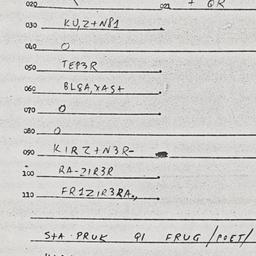 020 021 + QR
030 KU,Z+N81
040 O
050 TEP3R
060 BLGA,XAS+
070 O
080 O
090 KIRZ+N3R-
100 RA-ZIR3R
110 FR1ZIR3RA,,
S+A PRUK QI FRUG/POET/